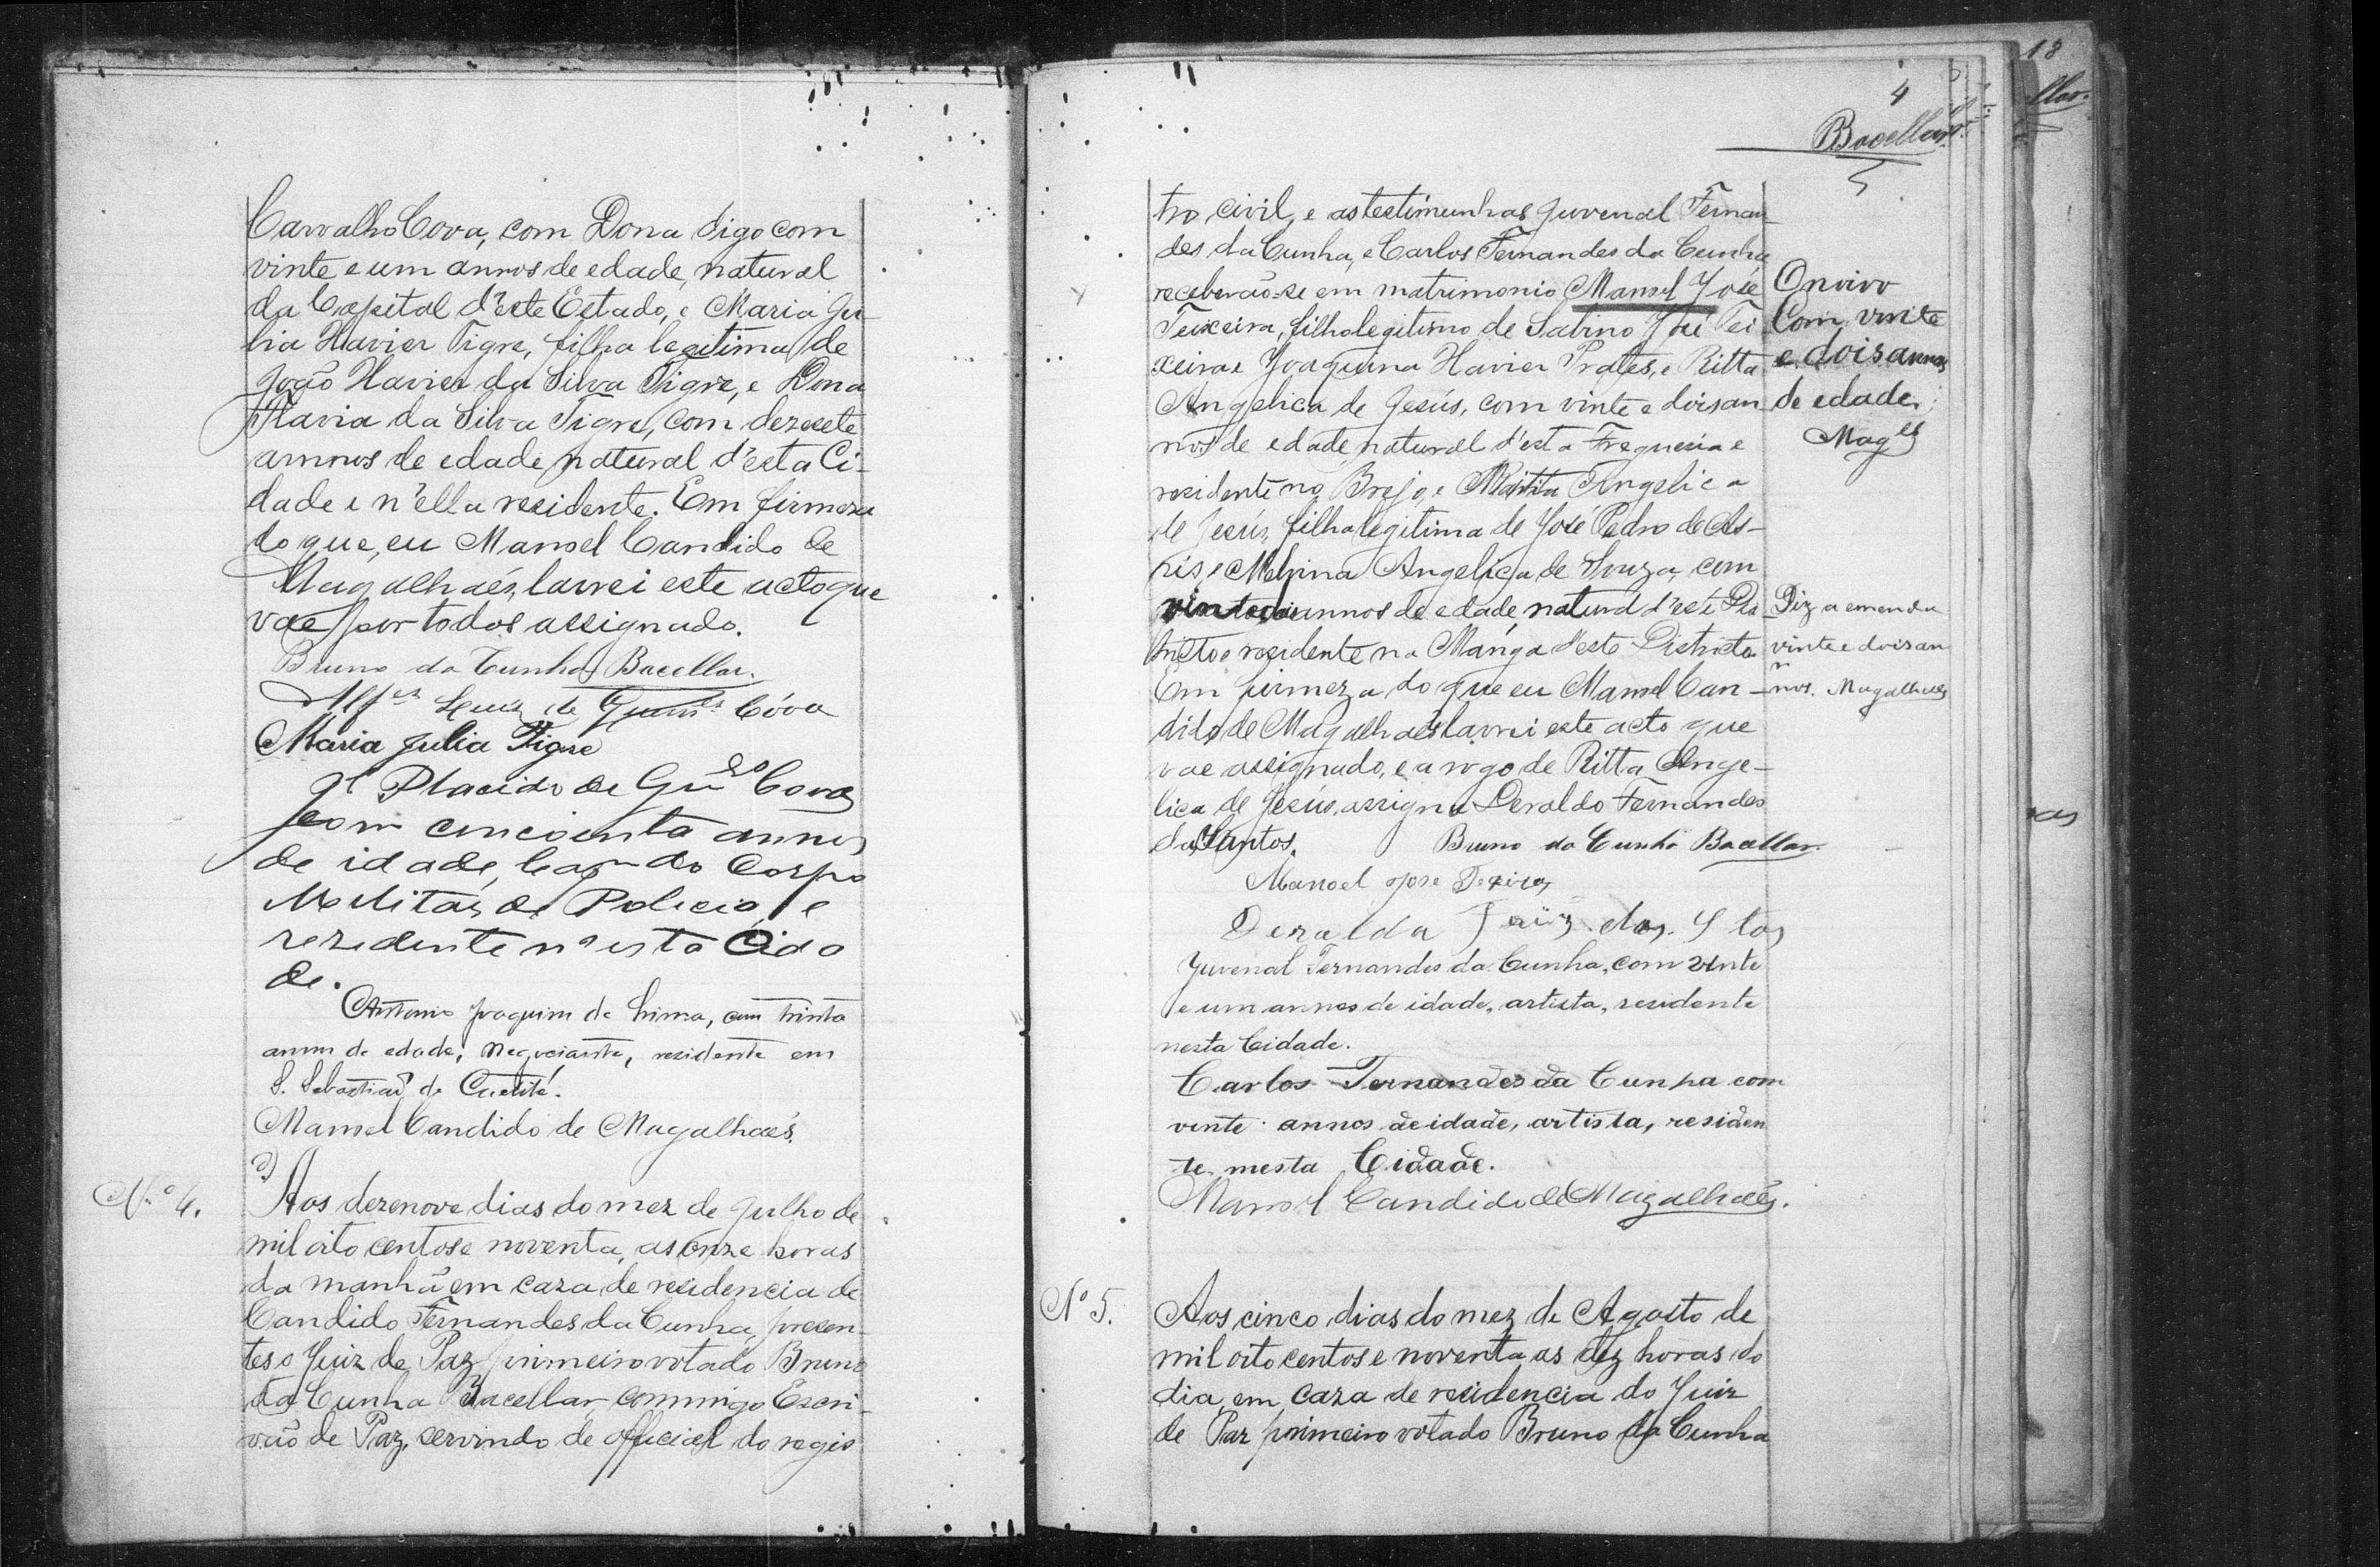 Carvalho Cova, com Dona digo com
vinte e um annos de edade, natural
da Capital d'este Estado, e Maria Ju-
lia Xavier Tigre, filha legitima de
João Xavier da Silva Tigre, e Dona
Flavia da Silva Tigre, com dezesete
annos de edade, natural d'esta Ci-
dade e n'ella residente. Em firmeza
do que, eu Manoel Candido de
Magalhaés, lavrei este acto que
vae por todos assignado.
Bruno da Cunha Bacellar.
Luiz de Cóva
Maria Julia Tigre
Placido de Cova
com cincoenta annos
de idade, do Corpo
Melitar de Policia, e
rezedente n'esta Cida
de.
Antonio Joaquim de Lima, com trinta
annos de edade, Negociante, residente em
S. Sebastião de Caetité.
Manoel Candido de Magalhaés.
Nº 4.
Aos dezenove dias do mez de Julho de
mil oito centos e noventa, as onze horas
da manhã em caza de residencia de
Candido Fernandes da Cunha, presen-
tes o Juiz de Paz primeiro votado Bruno
da Cunha Bacellar, commigo Escri-
vão de Paz, servindo de official do regis
4
Bacellar.
tro civil, e as testimunhas Juvenal Fernan-
des da Cunha, e Carlos Fernandes da Cunha
receberão-se em matrimonio Manoel José
Teixeira, filho legitimo de Sabino José Tei
xeira e Joaquina Xavier Prates, e Ritta
Angelica de Jesús, com vinte e dois an-
nos de edade, natural d'esta Freguezia e
residente no Brejo, e Ritta Angelica
de Jesús, filha legitima de José Pedro de As-
sis e Angelica de Souza, com
annos de edade, natural d'este Dis
tricto e residente na Manga d'este Districto
Em firmeza do que eu Manoel Can-
dido de Magalhaés lavrei este acto que
vae assignado, e a rogo de Ritta Ange-
lica de Jesús, assigna Deraldo Fernandes
dos Santos.
Bruno da Cunha Bacellar.
Manoel Jose Texeira
Deraldo dos Stos
Juvenal Fernandes da Cunha, com vinte
e um annos de idade, artista, residente
nesta Cidade.
Carlos Fernandes da Cunha com
vinte annos de idade, artista, residen
te nesta Cidade.
Manoel Candido de Magalhaés.
O noivo
Com vinte
e dois annos
de edade.
Mages
Diz a emenda
vinte e dois an
nos. Magalhaés
Nº 5.
Aos cinco dias do mez de Agosto de
mil oito centos e noventa as dez horas do
dia, em caza de residencia do Juiz
de Paz primeiro votado Bruno da Cunha
18
llar.